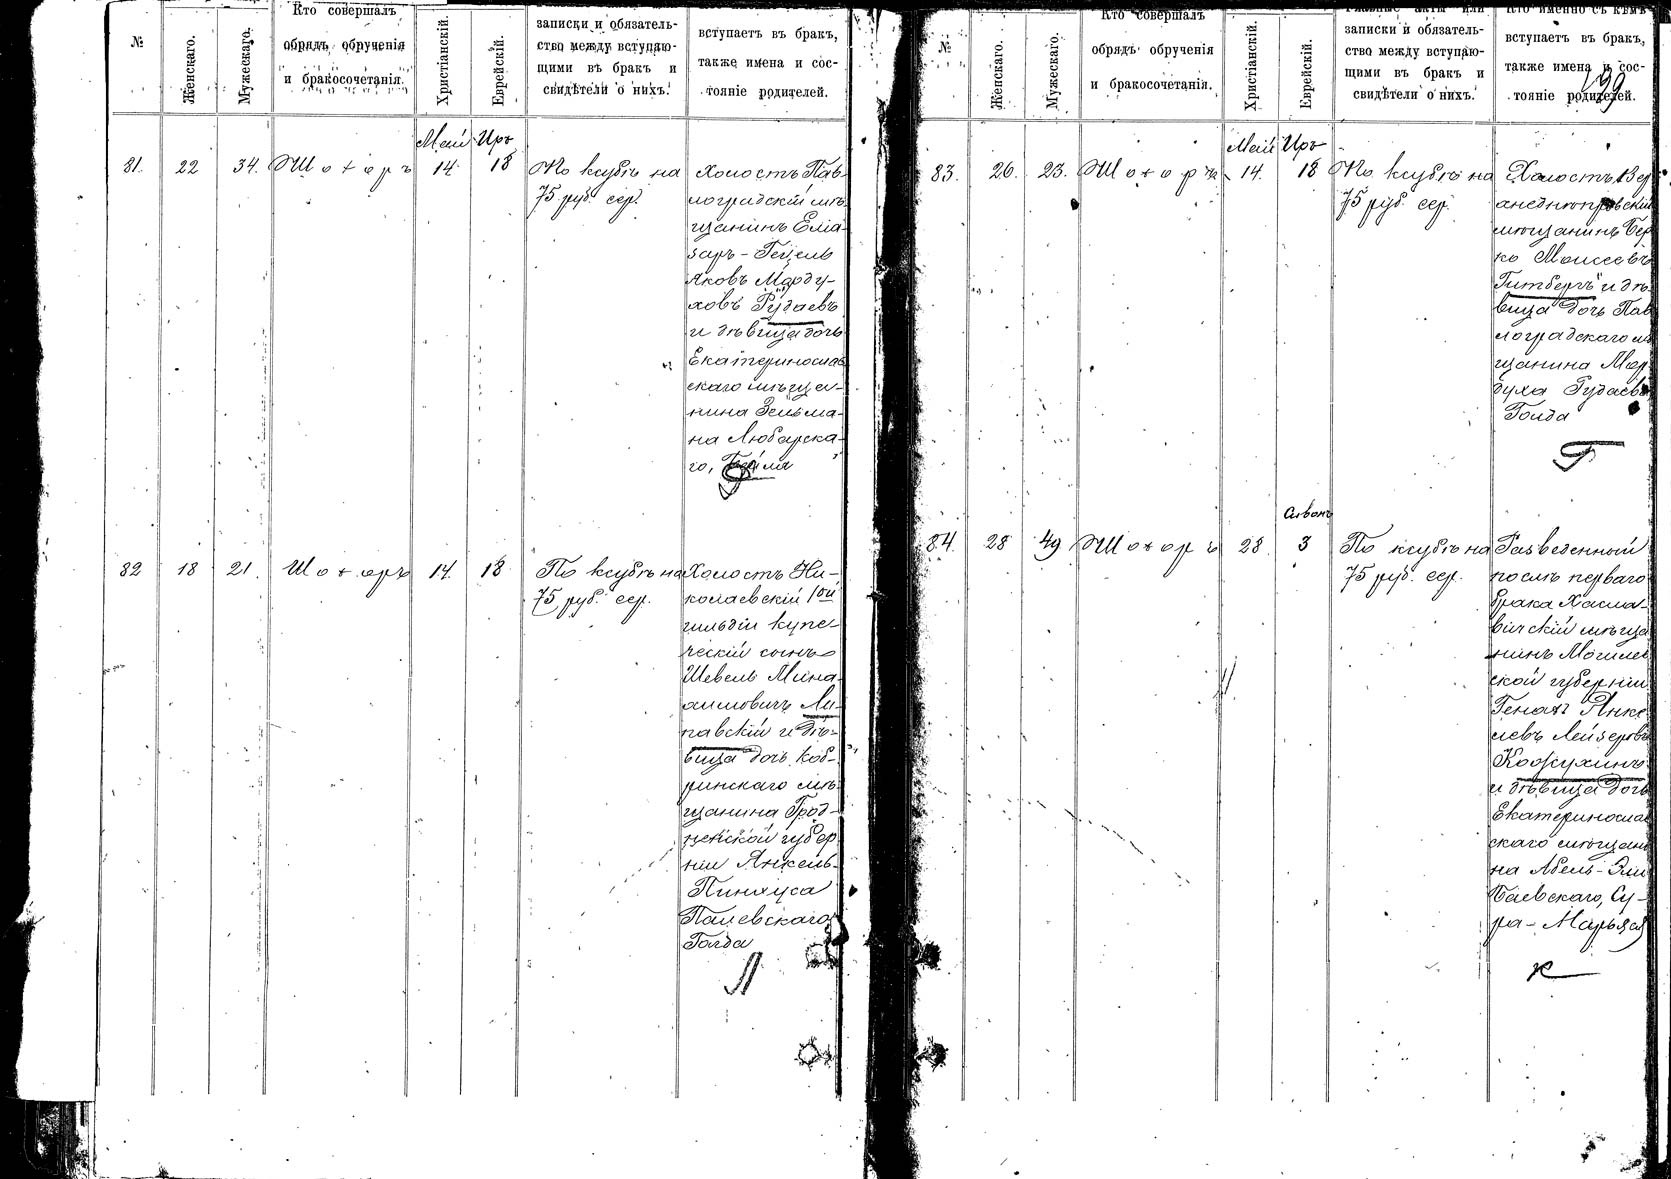 №
Женскаго.
Мужескаго.
Кто совершалъ
обрядъ обрученія
и бракосочетанія.
Христіанскій.
Еврейскій.
записки и обязатель-
ство между вступаю-
щими въ бракъ и
свидѣтели о нихъ.
вступаетъ въ бракъ,
также имена и сос-
тояніе родителей.
Май Иръ
81. 22 34. Шохоръ 14 18
По ксубѣ на
75 руб. сер.
Холостъ Пав-
лоградскій мѣ-
щанинъ Еліа-
заръ-
ЯковъМорду-
ховъ Рудаевъ
и дѣвица дочь
Екатеринослав
скаго мѣща-
нина Зельма-
на Любарска-
го, Бейля
82 18 21. Шохоръ 14. 18
По ксубѣ на
75 руб. сер.
Холостъ Ни-
колаевскій 1ой
гильдіи купе-
ческій сынъ
Шевель Мина-
аимовичъ Ли-
павскій и дѣ-
вица дочь Коб-
ринскаго мѣ-
щанина Грод-
ненской губер
ніи Янкель-
Пинхуса
Палевскаго
Голда
Л
№
Женскаго.
Мужескаго.
Кто совершалъ
обрядъ обрученія
и бракосочетанія.
Христіанскій.
Еврейскій.
Главные акты или
записки и обязатель-
ство между вступаю-
щими въ бракъ и
свидѣтели о нихъ.
Кто именно съ кѣмъ
вступаетъ въ бракъ,
также имена и сос-
тояніе родителей.
Май Иръ
83. 26. 23. Шохоръ 14. 18
По ксубѣ на
75 руб. сер.
Холостъ Вер
хнеднѣпровскій
мѣщанинъ Бер
ко Моисеевъ
Гитбергъ и дѣ
вица дочь Пав
лоградскаго мѣ
щанина Мор
духа Рудаева
Голда
Г
Сивонъ
84. 28 49 Шохоръ 28. 3
По ксубѣ на
75 руб. сер.
Разведенный
послѣ перваго
брака Хасла-
вичскій мѣща
нинъ Могилев
ской губерніи
Генахъ Янке
левъ Лейзеровъ
Кожухинъ
и дѣвица дочь
Екатеринослав
скаго мѣщани
на Абель-Эли
Баевскаго, Су-
ра-Марьяся
К